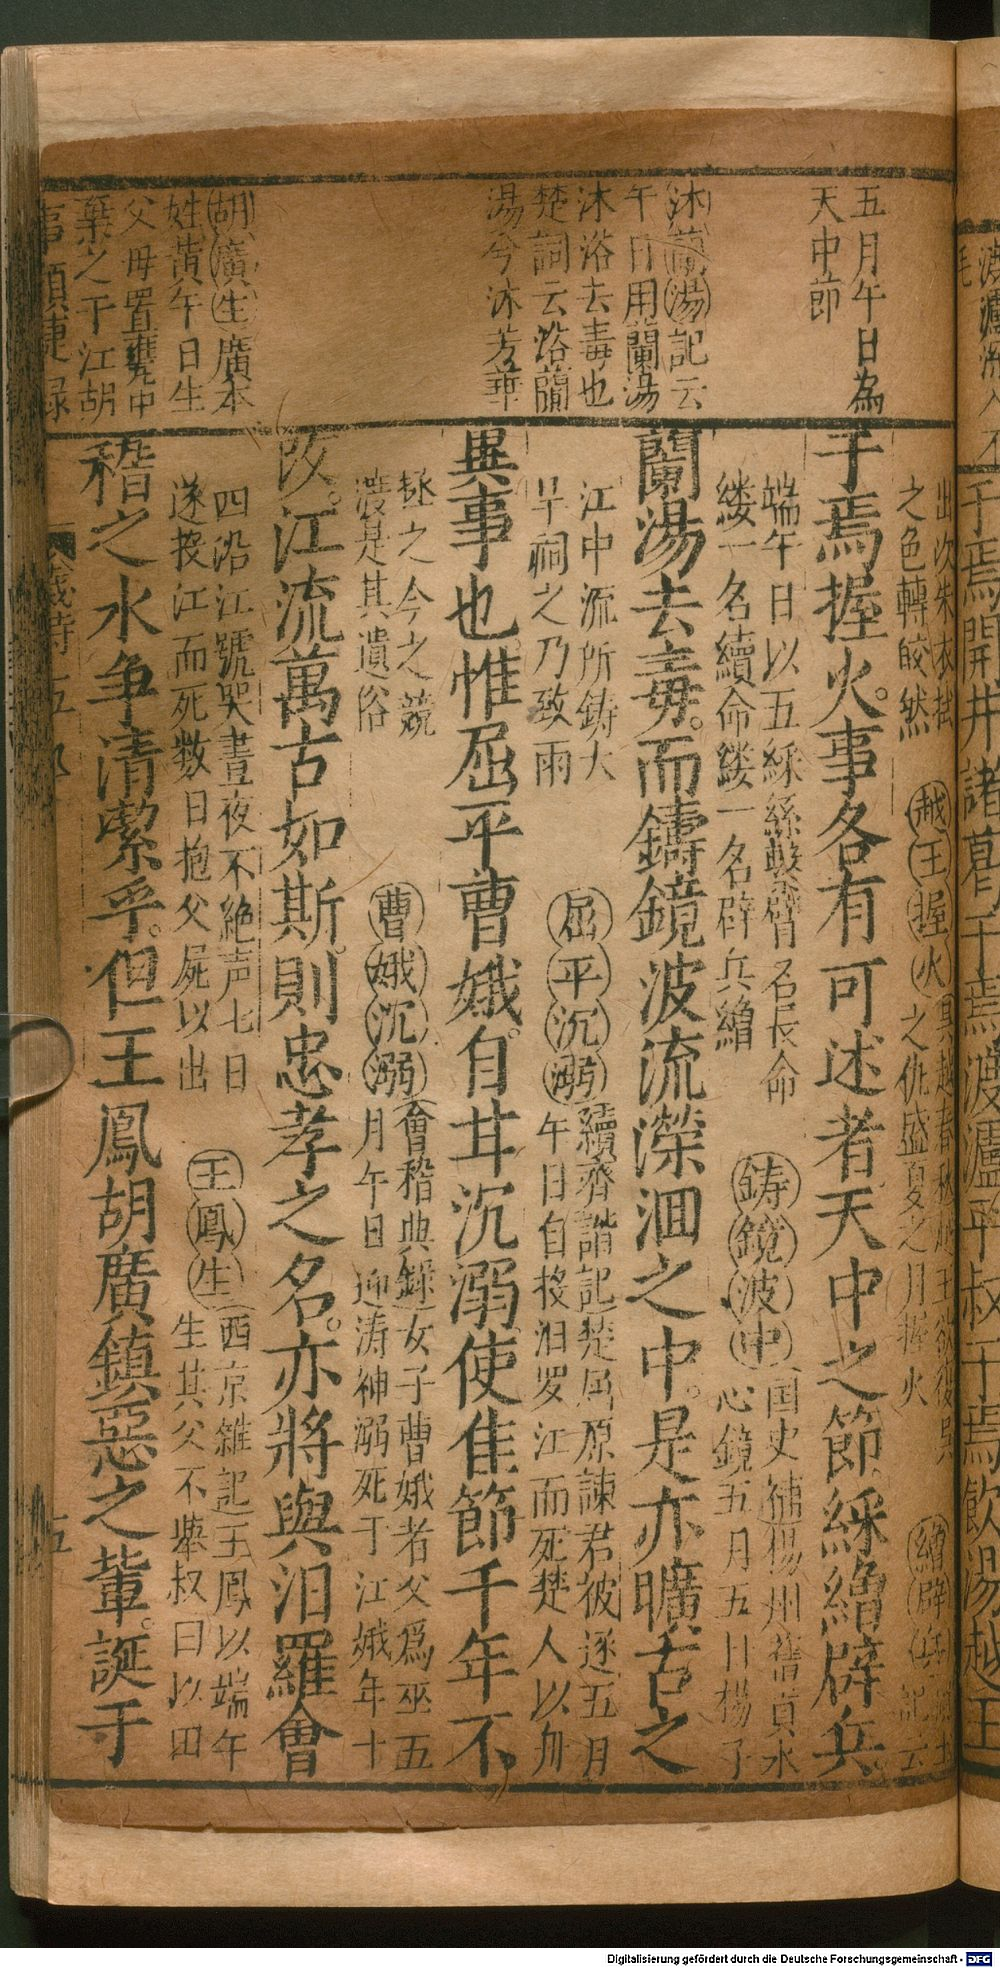 五月午日為
天中節
沐蘭湯記云
午日用蘭湯
沐浴去毒也
楚詞云浴蘭
湯兮沐芳華
胡廣生廣本
姓黃午日生
父母置甕中
棄之于江胡
出次朱衣拭
之色轉皎然
越王握火吳越春秋越王欲復吳
之仇盛夏之月握火
繒辟兵
記云
于焉握火事各有可述者天中之節綵繒辟兵
端午日以五綵絲繫臂名長命
縷一名續命縷一名辟兵繒
鋳鏡波中国史補楊州舊貢水
心鏡五月五日楊子
蘭湯去毒而鑄鏡波流濴洄之中是亦曠古之
江中流所鋳大
旱祠之乃致雨
屈平沉溺續齊諧記楚屈原諫君被逐五月
午日自投汨罗江而死楚人以舟
異事也惟屈平曹娥自甘沉溺使佳節千年不
拯之今之競
渡是其遺俗
曹娥沉溺會稽典錄女子曹娥者父爲巫五
月午日迎涛神溺死于江娥年十
改江流萬古如斯則忠孝之名亦將與汨羅會
四沿江號哭晝夜不絕声七日
遂投江而死数日抱父屍以出
王鳳生西京雜記王鳳以端午
生其父不舉叔曰以田
稽之水争清潔乎但王鳳胡廣鎮惡之輩誕于
歲時
五
于焉開井諸葛于焉渡瀘平叔于焉飲湯越王
Digitalisierung gefördert durch die Deutsche Forschungsgemeinschaft - DFG